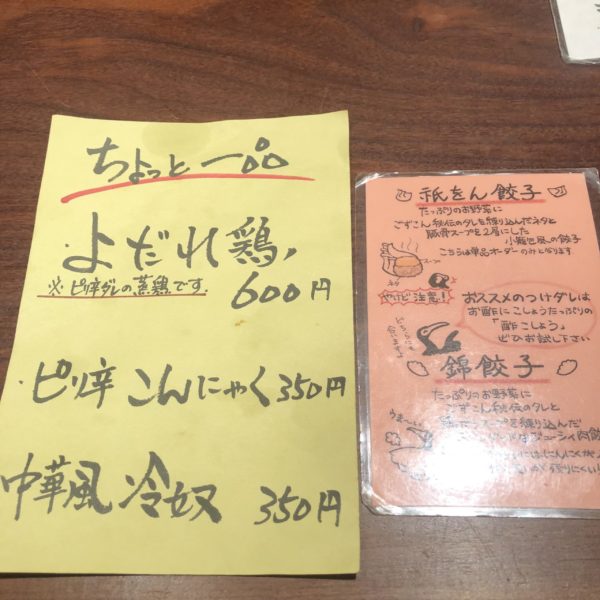 ちょっと一品
・よだれ鶏
※ピリ辛ダレの蒸鶏です。
600円
・ピリ辛こんにゃく 350円
中華風冷奴 350円
祇をん餃子
たっぷりのお野菜に
ごずこん秘伝のタレを練り込んだネタと
豚骨スープを2層にした
小籠包風の餃子
こちらは単品オーダーのみとなります
スープ
ネタ
やけど注意!
おススメのつけダレは
お酢にこしょうたっぷりの
「酢こしょう」
ぜひお試し下さい
錦餃子
たっぷりのお野菜に
ごずこん秘伝のタレと
スープを練り込んだ
ジューシィ肉餃